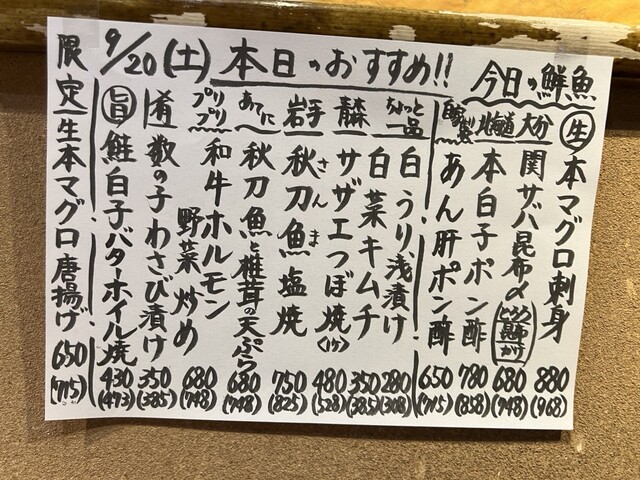 9/20(土)本日のおすすめ!!
今日の鮮魚
㊗生本マグロ刺身 880 (968)
大分 関サバ昆布〆(とろろ昆布かけ) 680 (748)
北海道 本白子ポン酢 780 (858)
自家製 あん肝ポン酢 650 (715)
ちょっと一品 白うり浅漬け 280 (308)
白菜キムチ 350 (385)
青森 サザエつぼ焼(1ケ) 480 (528)
岩手 秋刀魚塩焼 さんま 750 (825)
あてに 秋刀魚と椎茸の天ぷら 680 (748)
プリプリ 和牛ホルモン野菜炒め 680 (748)
肴 数の子わさび漬け 350 (385)
旨 鮭白子バターホイル焼 430 (473)
限定 生本マグロ唐揚げ 650 (715)